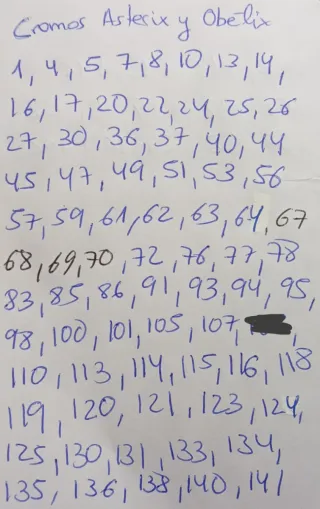 Cromos Asterix y Obelix
1, 4, 5, 7, 8, 10, 13, 14,
16, 17, 20, 22, 24, 25, 26
27, 30, 36, 37, 40, 44
45, 47, 49, 51, 53, 56
57, 59, 61, 62, 63, 64, 67
68, 69, 70, 72, 76, 77, 78
83, 85, 86, 91, 93, 94, 95,
98, 100, 101, 105, 107,
110, 113, 114, 115, 116, 118
119, 120, 121, 123, 124,
125, 130, 131, 133, 134,
135, 136, 138, 140, 141